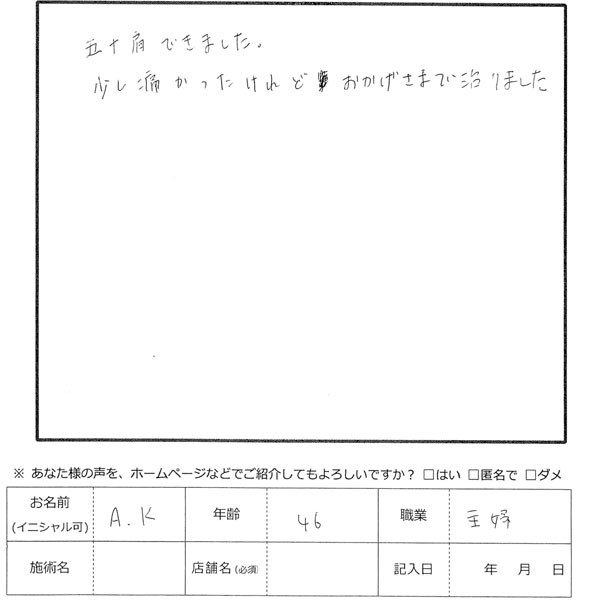 五十肩できました。
少し痛かったけれど おかげさまで治りました
※ あなた様の声を、ホームページなどでご紹介してもよろしいですか？ □はい □匿名で □ダメ
お名前 (イニシャル可) A.K 年齢 46 職業 主婦
施術名 店舗名(必須) 記入日 年 月 日